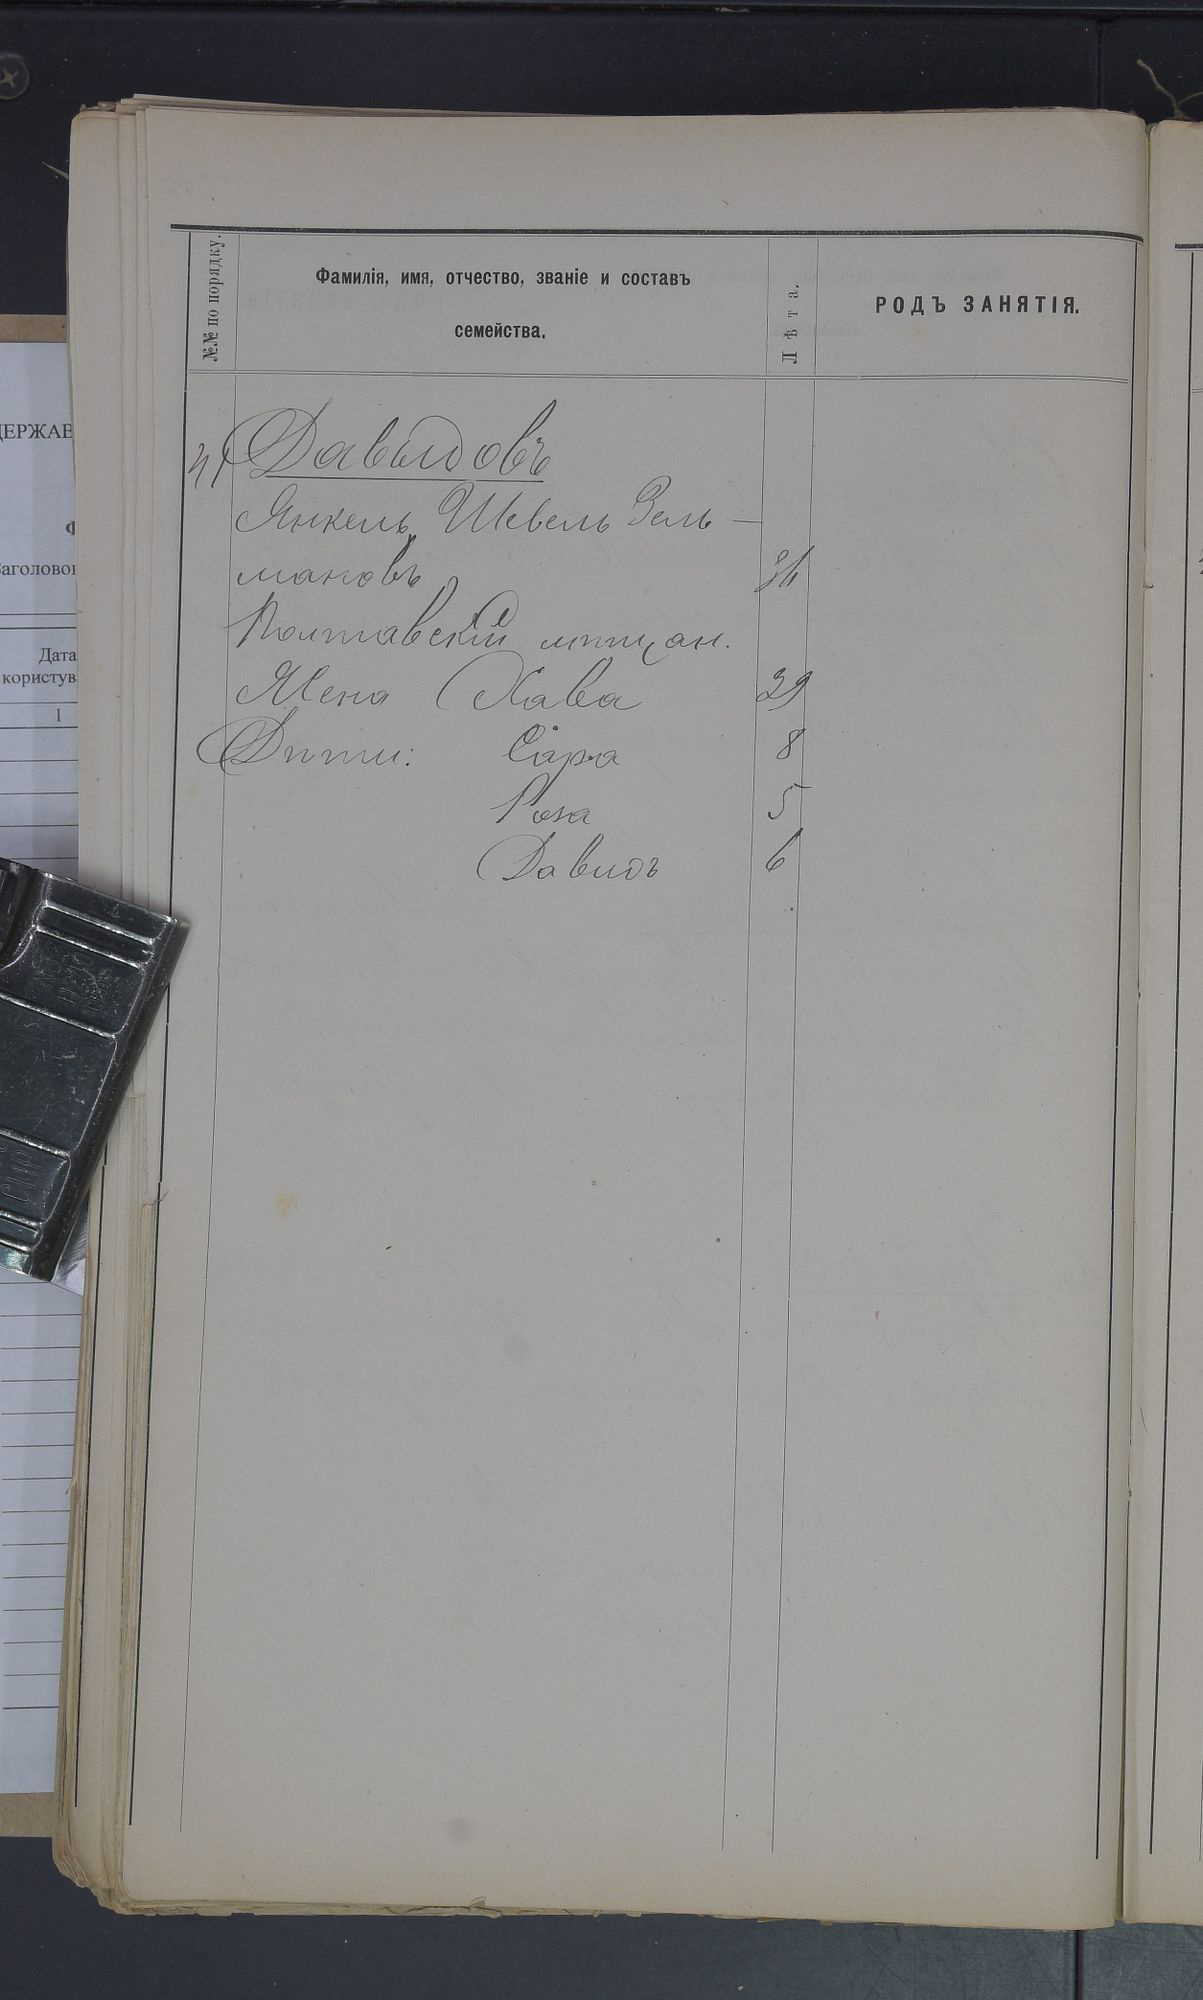 №№ по порядку.
Фамилія, имя, отчество, званіе и составъ
семейства.
Лѣта.
РОДЪ ЗАНЯТІЯ.
Давыдовъ
Янкель Шевель Зель-
мановъ
Полтавскій мѣщан.
Жена Хава 39
Дѣти: Сара 8
Роза 5
Давидъ 6
ДЕРЖАВ
Заголово
Дата
користув
1